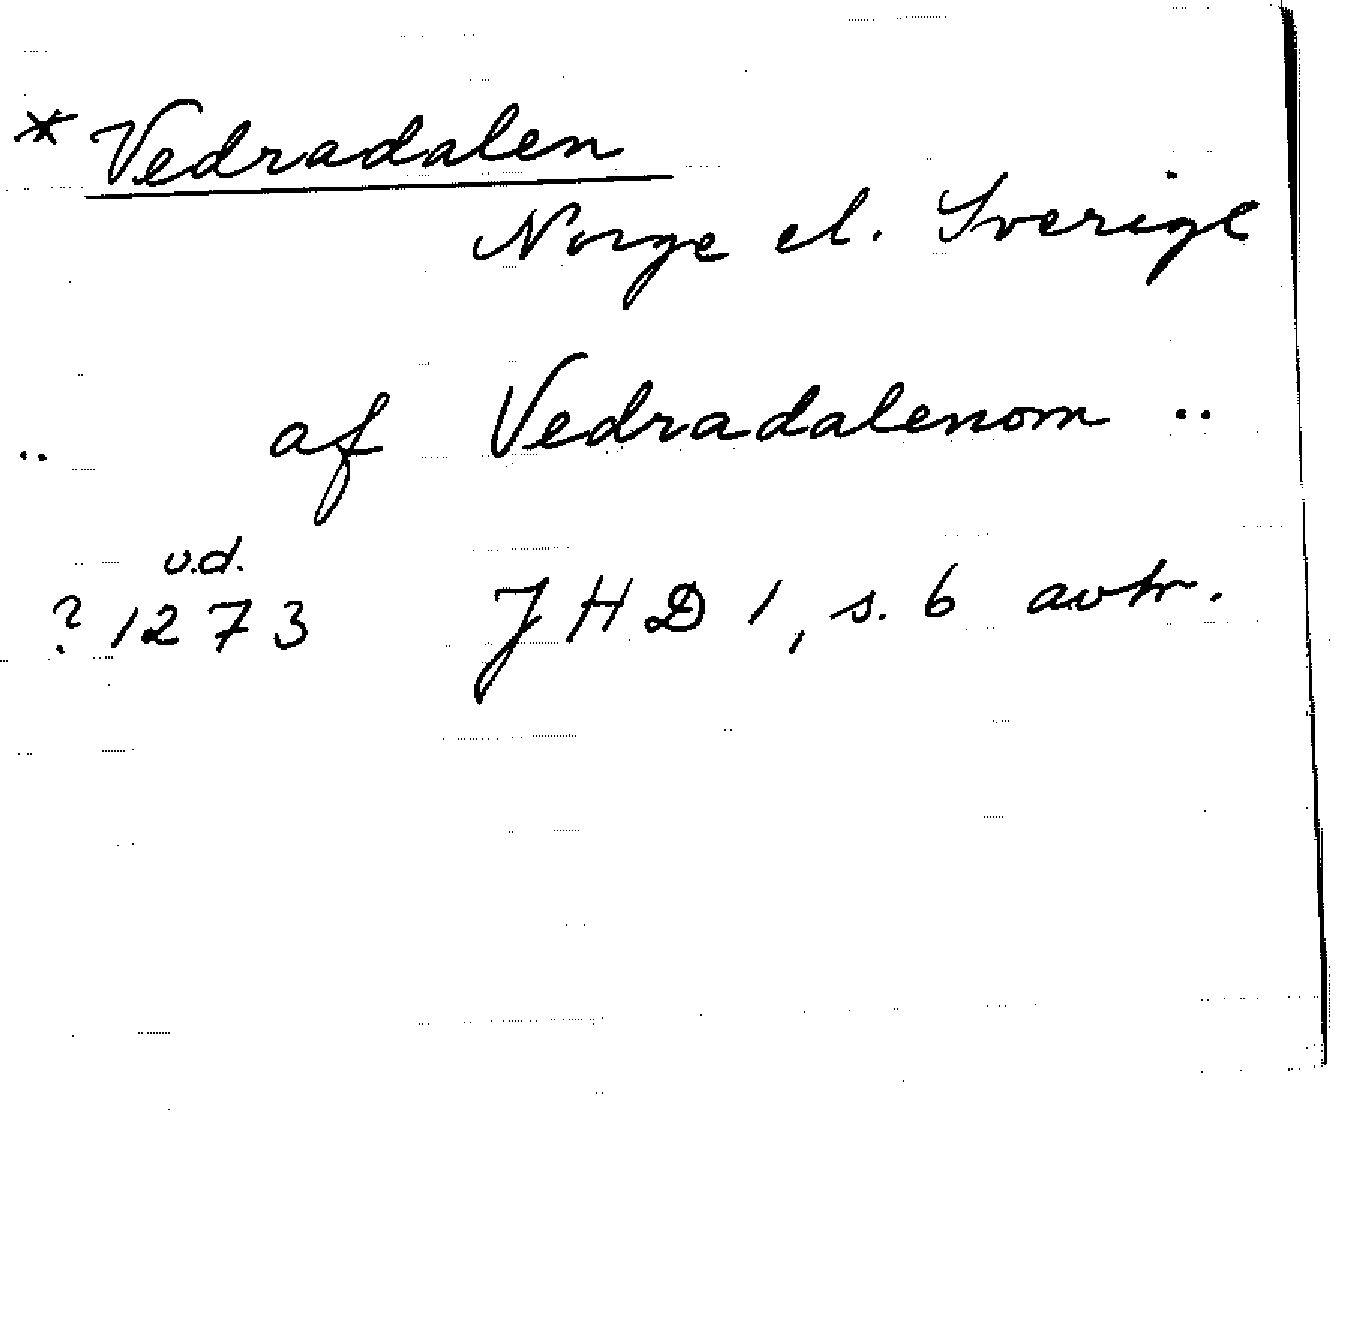 * Vedradalen
Norge el. Sverige
.. af Vedradalenom ..
u.d.
? 1273 JHD 1, s. 6 avtr.